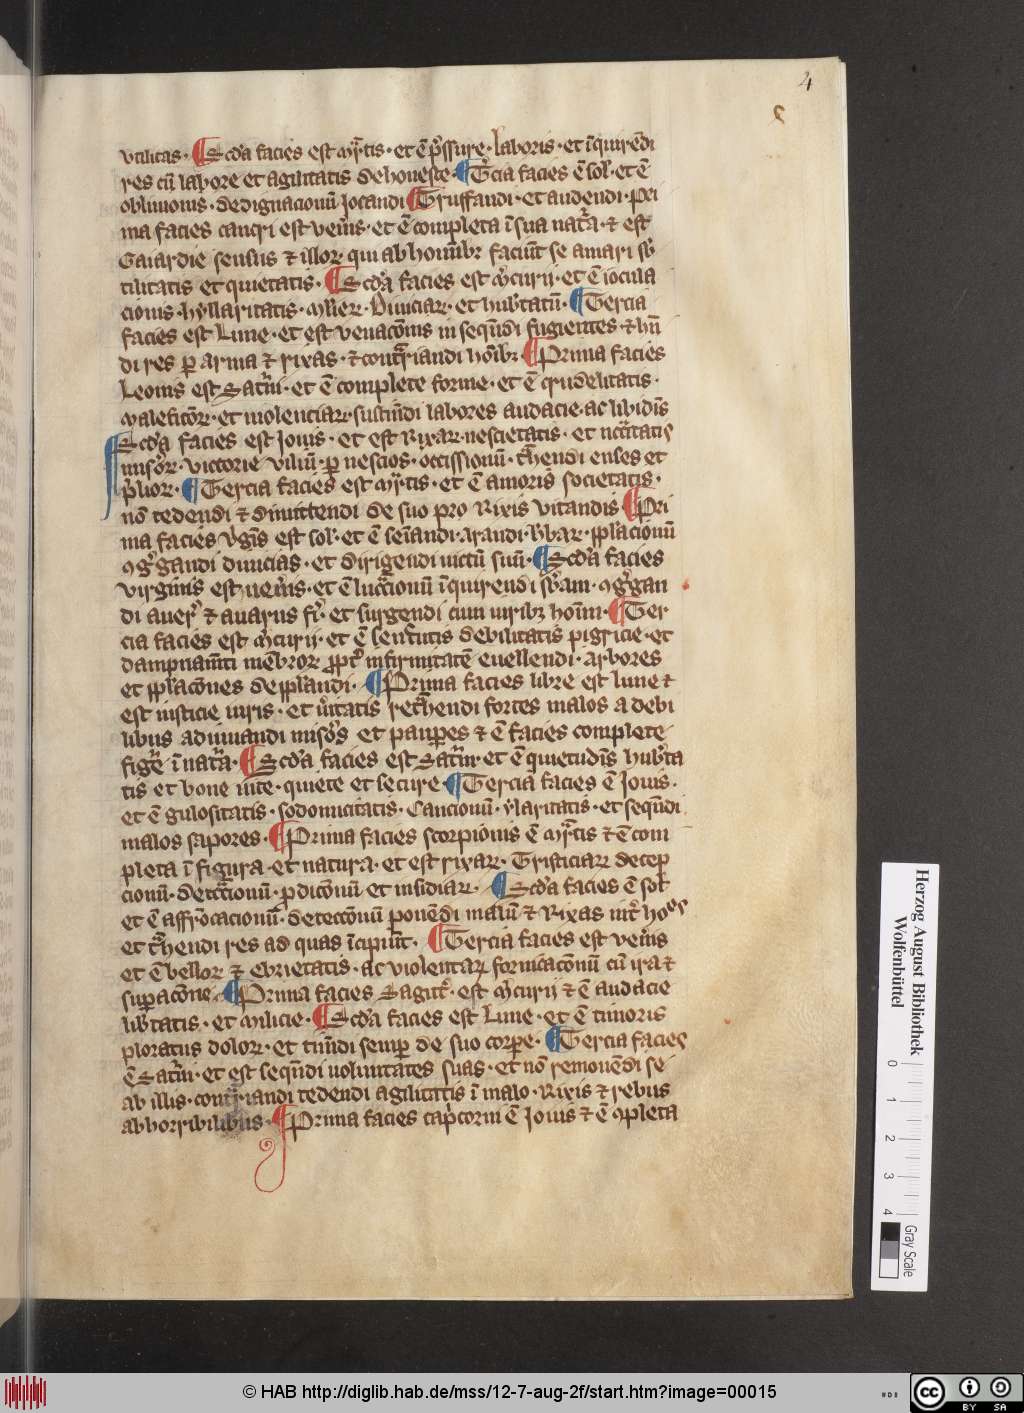 4
utilitas. Scd'a facies est mr̄tis. et ē p̄ssure. laboris. et īquirēdi
res cū labore et agilitatis dehoneste. Tercia facies ē sol'. et ē
oblivionis. dedignacionū Jocandi Truffandi. et audendi. Pri
ma facies cancri est veneris. et ē completa ī sua nat'a. et est
Gaiardie sensus et illor qui ab hominib' faciūt se amari sb'
tilitatis et quietatis. Scd'a facies est m'curii. et ē iocula
cionis. hyllaritatis. mulier. Diviciar. et hub'tatū. Tercia
facies est Lune. et est venacōnis in sequēdi fugientes et hn̄
di res per arma et rixas. et cont'riandi hoīb'. Prima facies
Leonis est Sat'ni. et ē complete forme. et ē crudelitatis.
maleficor. et violenciar. sustinēdi labores audacie. ac libidīs
Scd'a facies est Iovis. et est Rixar. nescietatis. et nccītatis
misor. victorie viliū. per nescios. occissionū. t'hendi enses et
p'lior. Tercia facies est mr̄tis. et ē amoris societatis.
nō tedendi et dimittendi de suo pro Rixis vitandis Pri
ma facies v'gīs est sol'. et ē seīandi. Arandi. h'bar. pplacionū
9g'gandi divicias. et dirigendi victū suū. Scd'a facies
virginis est ven'is. et ē lucc̄ionū īquirendi sb'am. 9g'gan
di aver' et avarus fi'. et surgendi cum virib' hoīm. Ter
cia facies est m'curii. et ē senectutis debilitatis pigricie. et
dampnam̄ti mēbror ppt' infirmitatē evellendi. arbores
et pplacōnes depplandi. Prima facies libre est lune et
est iusticie iuris. et v'itatis ret'hendi fortes malos a debi
libus adiuvandi misos et pauperes et ē facies complete
figure ī nat'a. Scd'a facies est Sat'ni. et ē quietudīs hub'ta
tis et bone vite. quiete et secure. Tercia facies ē Iovis.
et ē gulositatis. sodomicitatis. Cancionū. ylaritatis. et sequēdi
malos sapores. Prima facies scorpionis ē mr̄tis et ē com
pleta ī figura. et natura. et est rixar. Tristiciar decep
cionū. detcc̄ionū. perdicōnū et insidiar. Scd'a facies ē sol'
et ē affrōcacionū. deteccōnū ponēdi malū et Rixas int' hoēs
et t'hendi res ad quas īcipiūt. Tercia facies est ven'is
et ē bellor et ebrietatis. ac violentar fornicacōnū cū ira et
superacōne. Prima facies Sagitt'. est m'curii et ē audacie
lib'tatis. et milicie. Scd'a facies est Lune. et ē timoris
ploratus dolor. et timēdi semper de suo corpe. Tercia facies
ē Sat'ni. et est sequēdi voluntates suas. et nō removēdi se
ab illis. cont'riandi tedendi agilitatis ī malo. Rixis et rebus
ab horribilibus. Prima facies cap'corni ē Iovis et ē 9pleta
Herzog August Bibliothek
Wolfenbüttel
0 1 2 3 4
Gray Scale
© HAB http://diglib.hab.de/mss/12-7-aug-2f/start.htm?image=00015
cc BY SA